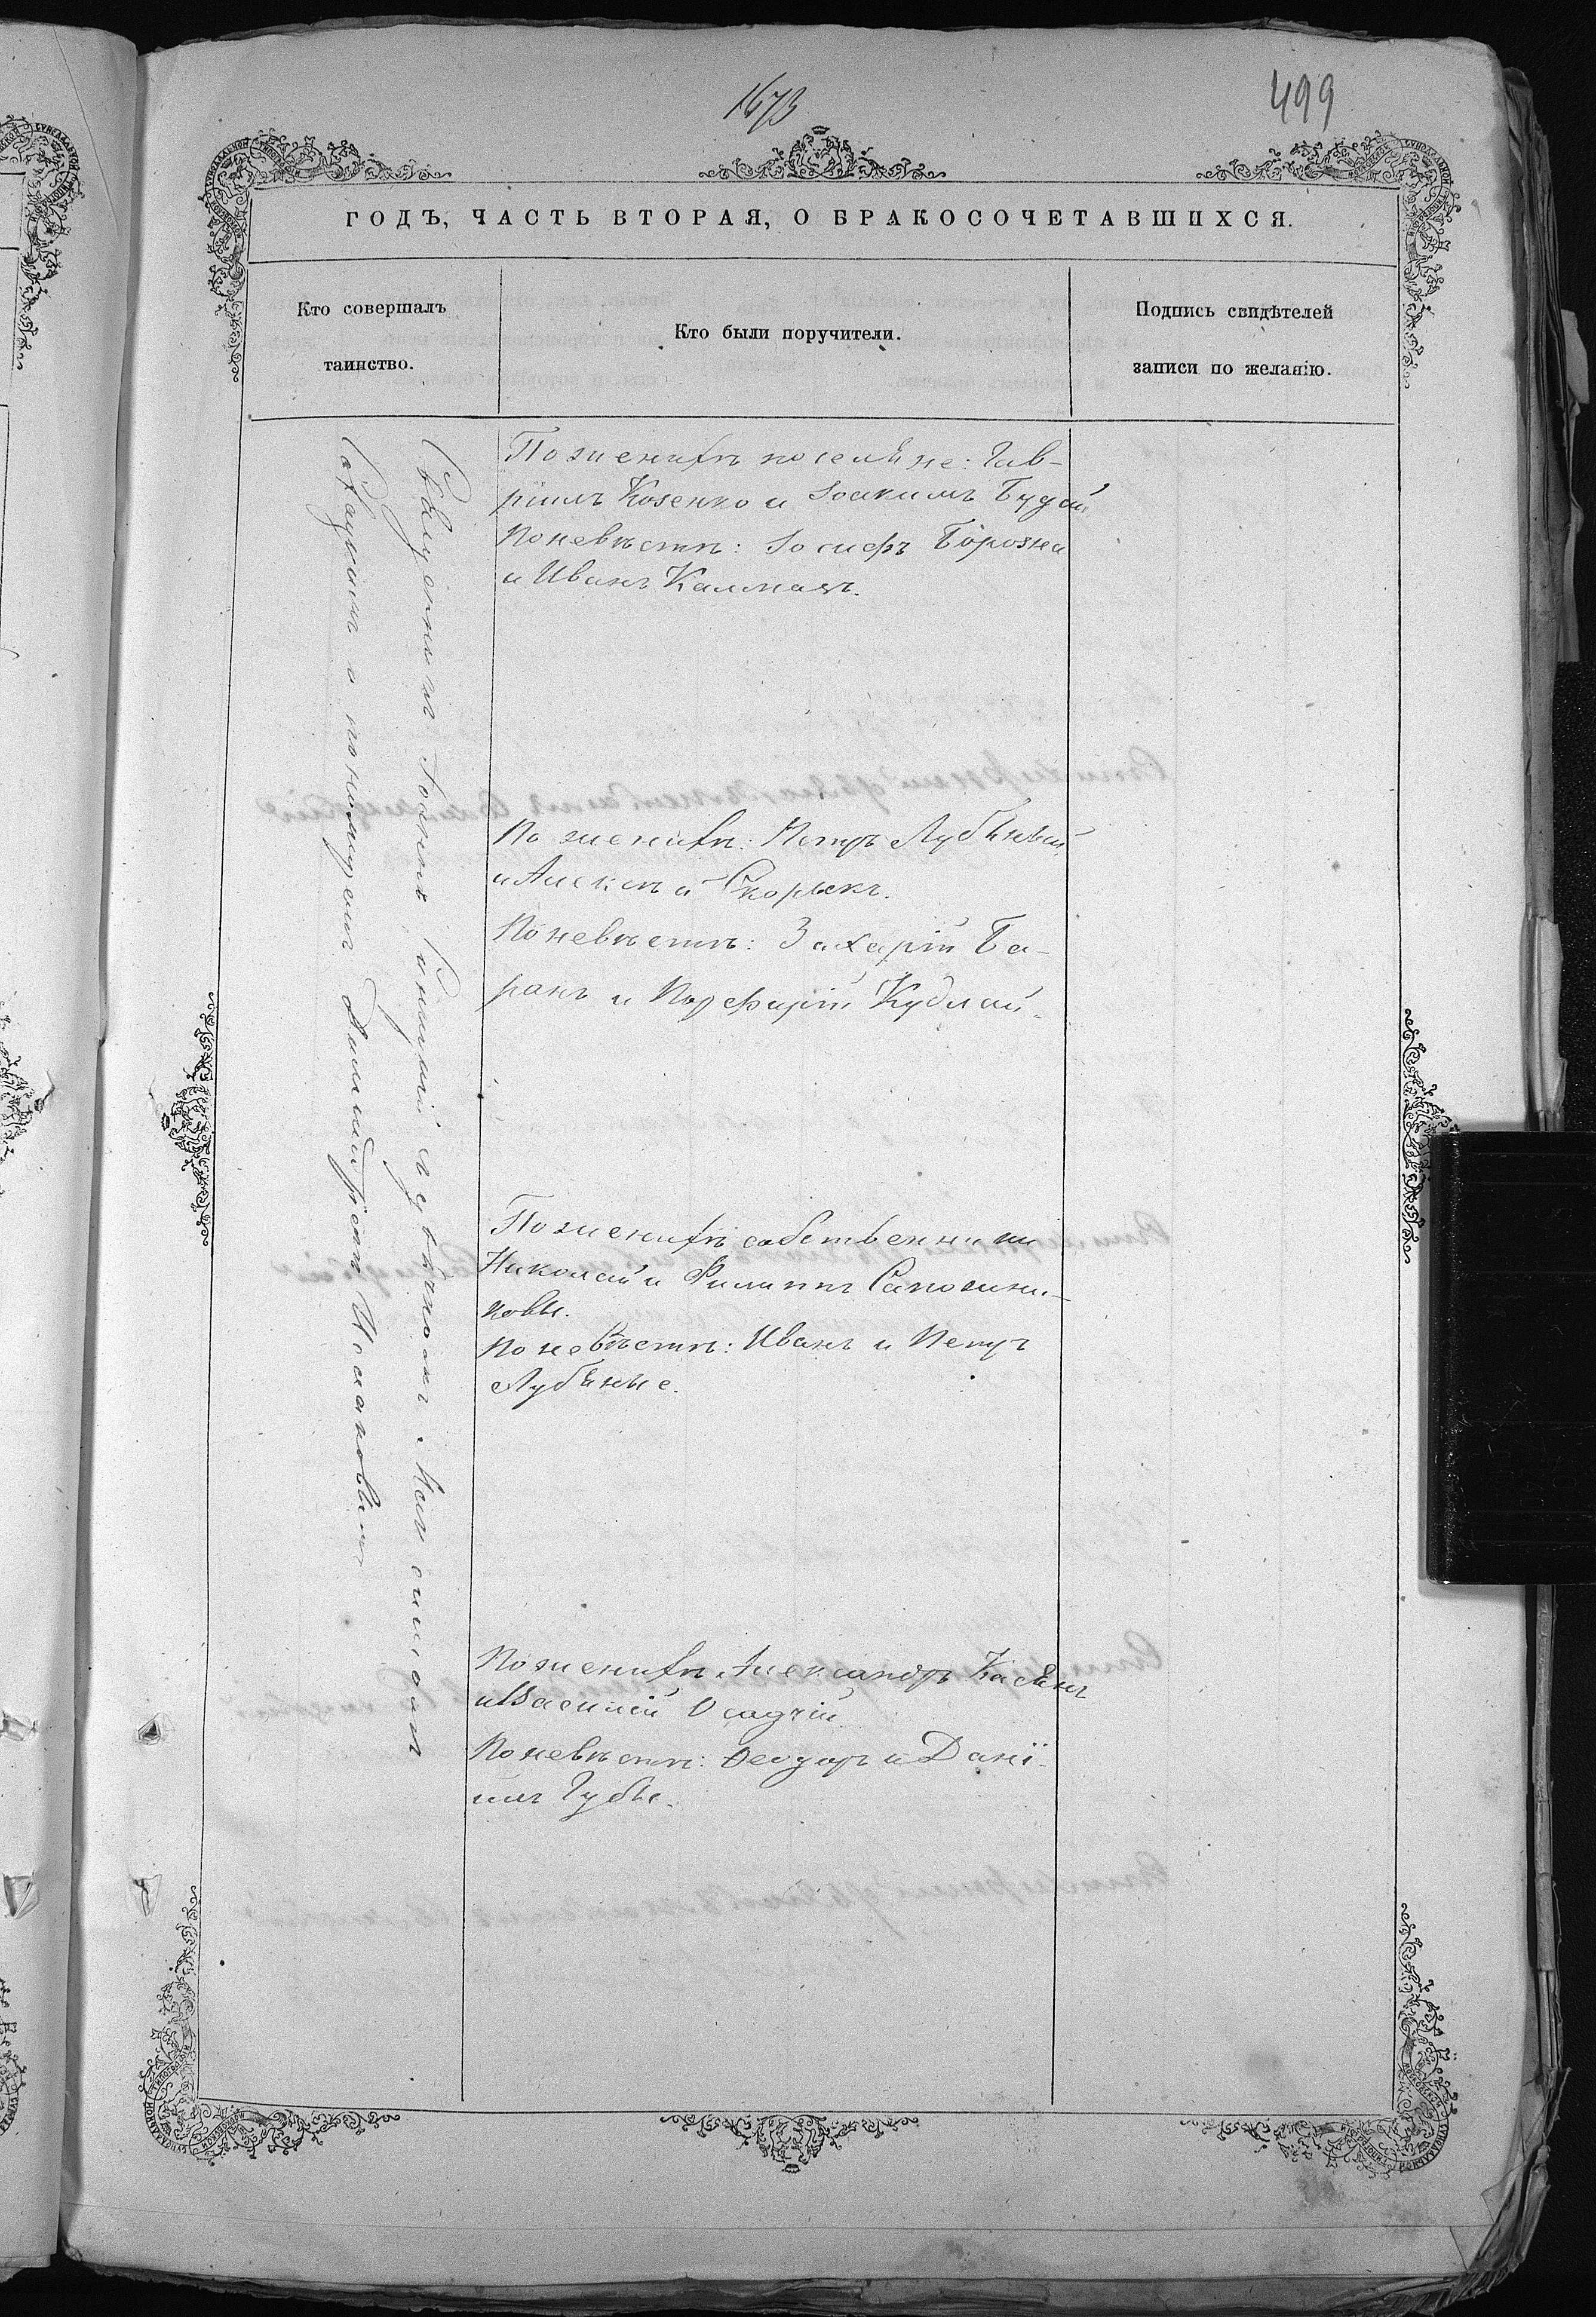 499
ГОДЪ, ЧАСТЬ ВТОРАЯ, О БРАКОСОЧЕТАВШИХСЯ.
Кто совершалъ
таинство.
Кто были поручители.
Подпись свидѣтелей
записи по желанію.
Священникъ Іоаннъ Синицкій съ дьячкомъ Максимомъ
и пономаремъ Димитріемъ Исаковымъ
По женихѣ поселяне: Гав-
ріилъ Козенко и Іоакимъ Будай
По невѣстѣ: Іосифъ Борозна
и Иванъ Калмазъ.
По женихѣ: Петръ Лубяный
и Алексѣй Скорыкъ.
По невѣстѣ: Захарій Ба-
ранъ и Порфирій Кублай.
По женихѣ собственники
Николай и Филиппъ Сапожни-
ковы.
По невѣстѣ: Иванъ и Петръ
Лубяные.
По женихѣ Александръ Касянъ
и Василій Осадчій
По невѣстѣ: Ѳеодоръ и Дані-
илъ Губы.